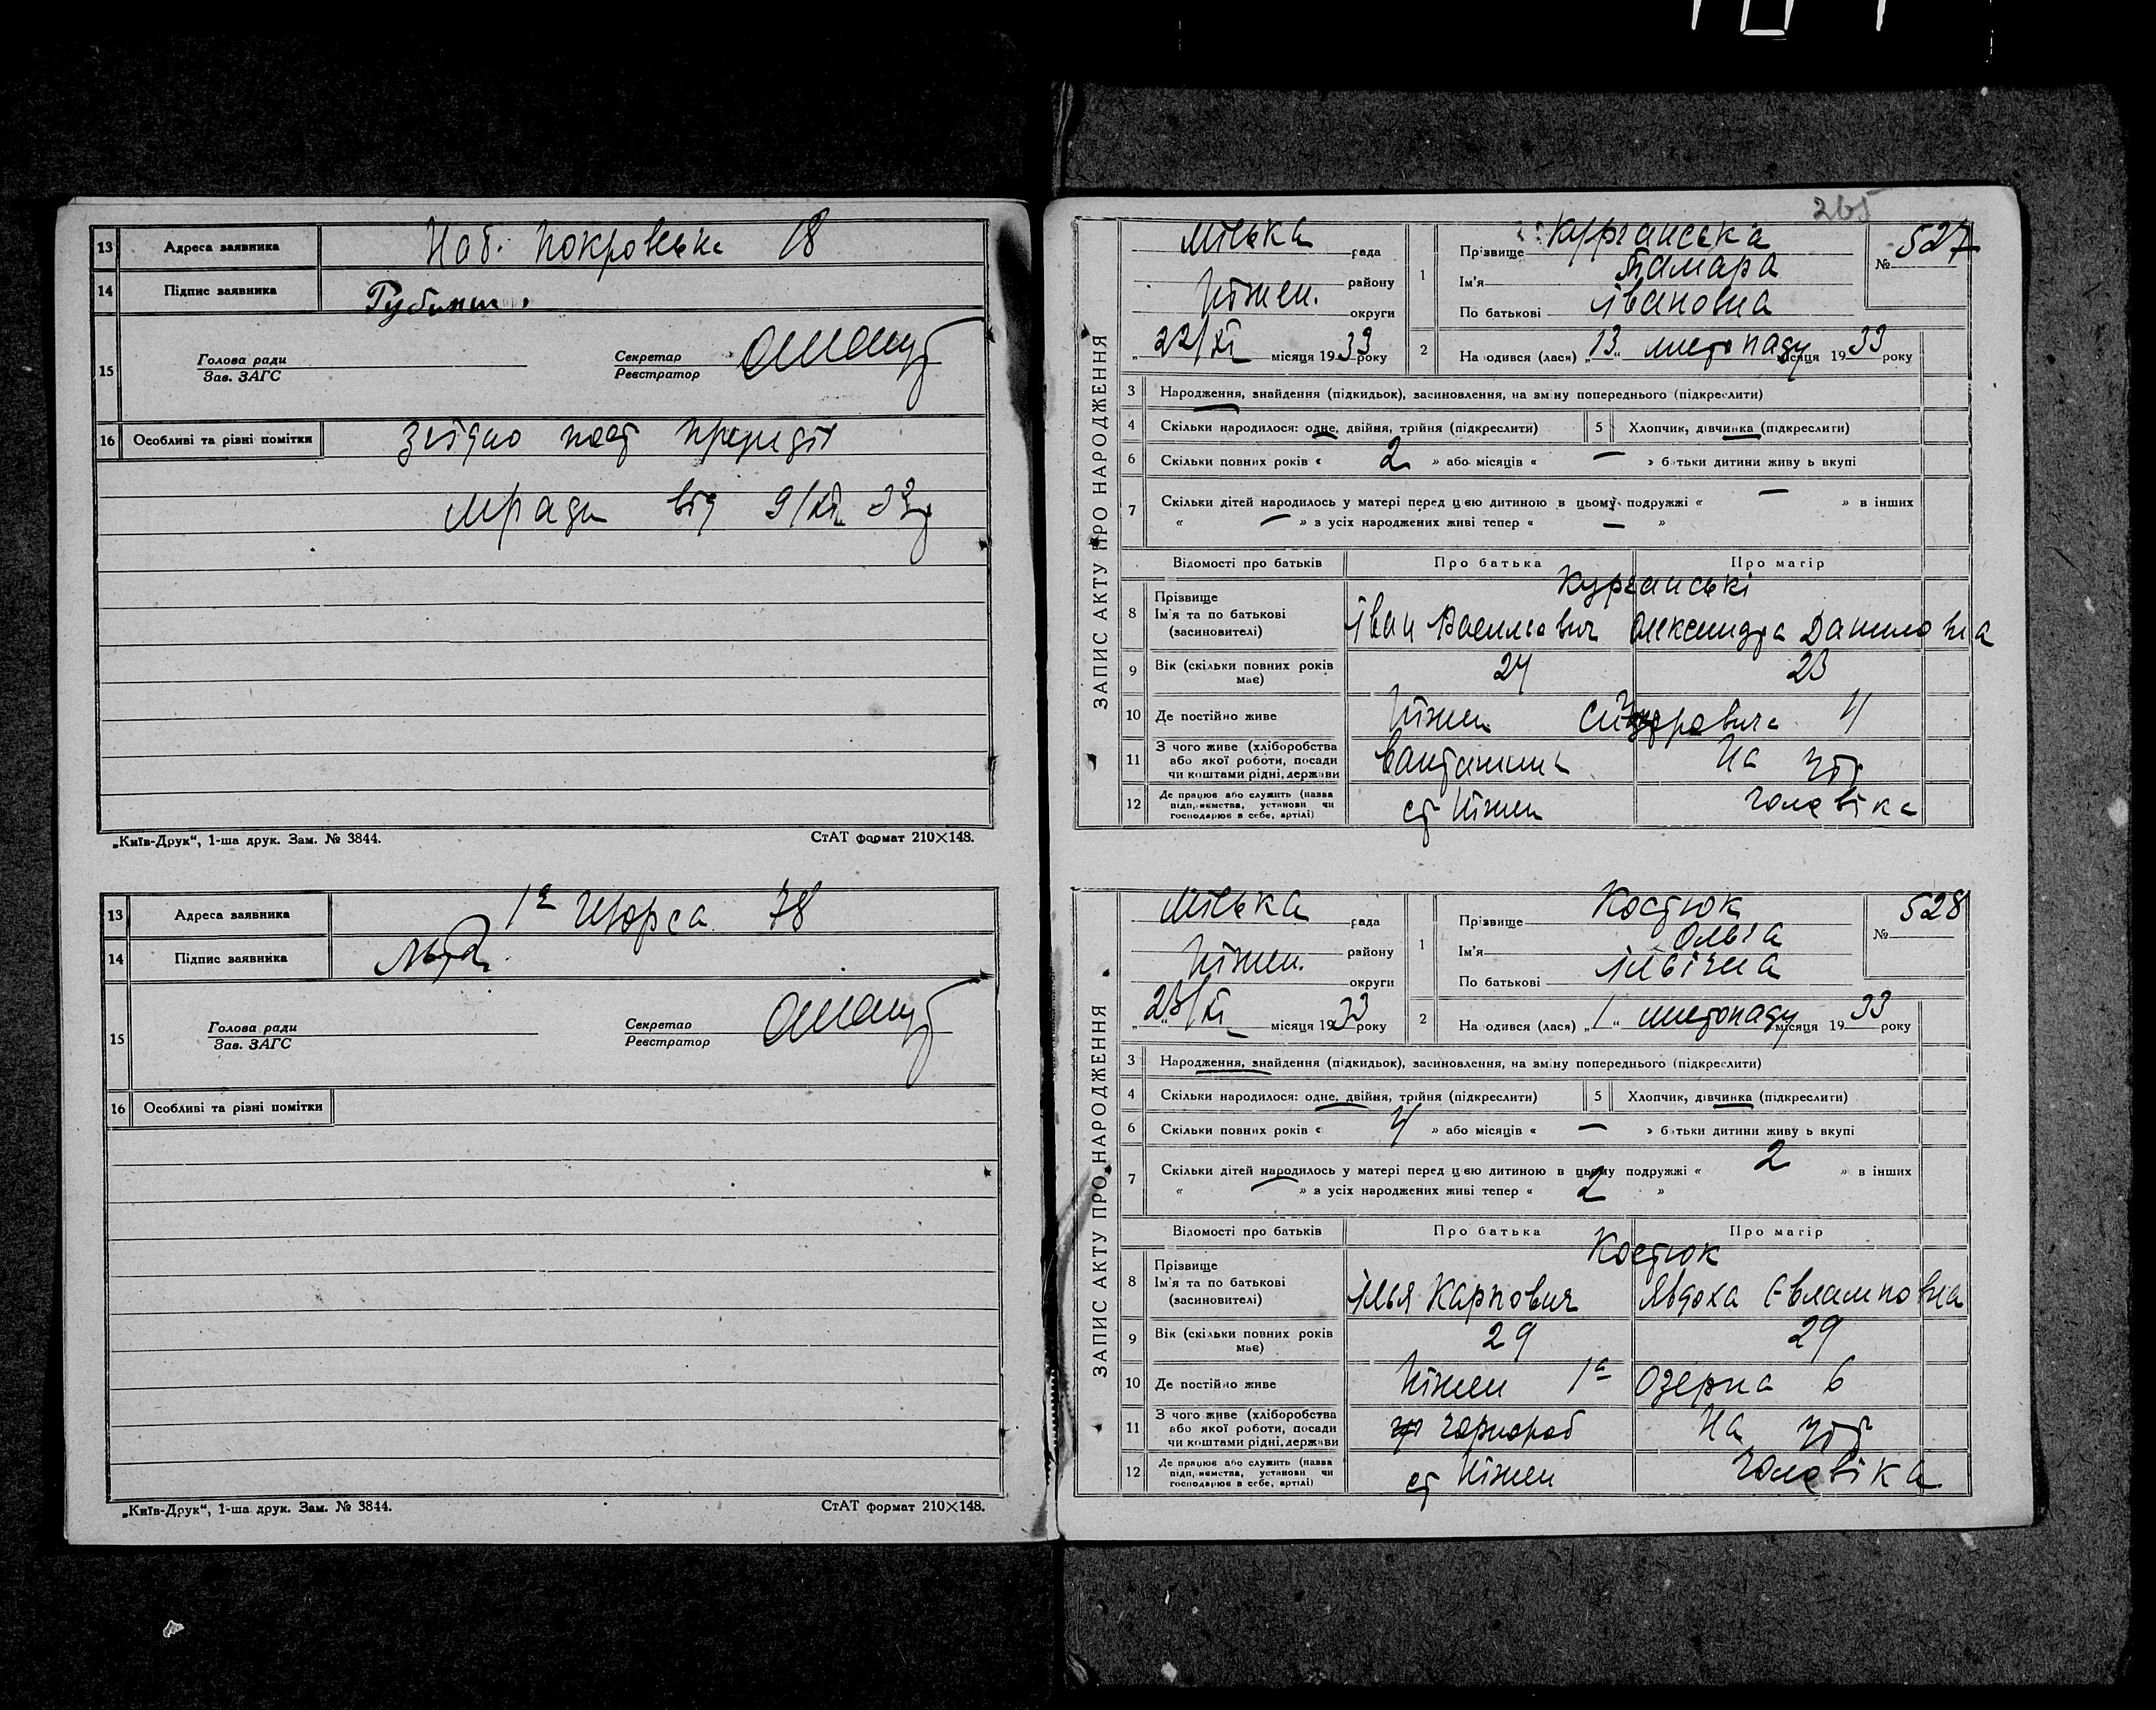 13 Адреса заявника Наб. Покровська 18
14 Підпис заявника
15 Голова ради
Зав. ЗАГС
Секретар
Реєстратор
16 Особливі та різні помітки Згідно пост президії
мради від 9/XII 33р
„Київ-Друк“, 1-ша друк. Зам. № 3844. СтАТ формат 210×148.
13 Адреса заявника 1а Щорса 78
14 Підпис заявника
15 Голова ради
Зав. ЗАГС
Секретар
Реєстратор
16 Особливі та різні помітки
„Київ-Друк“, 1-ша друк. Зам. № 3844. СтАТ формат 210×148.
265
ЗАПИС АКТУ ПРО НАРОДЖЕННЯ
Міська рада
району
Ніжен. округи
„22/XI місяця 1933 року
1 Прізвище Курганська
Ім'я Тамара
По батькові Івановна
№ 527
2 На одився (лася) „13“ листопаду місяця 1933 року
3 Народження, знайдення (підкидьок), засиновлення, на зміну попереднього (підкреслити)
4 Скільки народилося: одне, двійня, трійня (підкреслити) 5 Хлопчик, дівчинка (підкреслити)
6 Скільки повних років « 2 » або місяців « — » батьки дитини живу ь вкупі
7 Скільки дітей народилось у матері перед цією дитиною в цьому подружжі « — » в інших
« — » з усіх народжених живі тепер « — »
Відомості про батьків Про батька Про матір
Курганські
8 Прізвище
Ім'я та по батькові
(засиновителі)
Іван Васильович Олександра Даниловна
9 Вік (скільки повних років має) 24 23
10 Де постійно живе Ніжен 4
11 З чого живе (хліборобства
або якої роботи, посади
чи коштами рідні, держави
На утр
12 Де працює або служить (назва
підприємства, установи чи
господарює в себе, артілі)
ст Ніжен чоловіка
ЗАПИС АКТУ ПРО НАРОДЖЕННЯ
Міська рада
району
Ніжен. округи
„23/XI місяця 1933 року
1 Прізвище Костюк
Ім'я Ольга
По батькові Іллівічна
№ 528
2 На одився (лася) „1“ листопаду місяця 1933 року
3 Народження, знайдення (підкидьок), засиновлення, на зміну попереднього (підкреслити)
4 Скільки народилося: одне, двійня, трійня (підкреслити) 5 Хлопчик, дівчинка (підкреслити)
6 Скільки повних років « 4 » або місяців « — » батьки дитини живу ь вкупі
7 Скільки дітей народилось у матері перед цією дитиною в цьому подружжі « 2 » в інших
« — » з усіх народжених живі тепер « 2 »
Відомості про батьків Про батька Про матір
Костюк
8 Прізвище
Ім'я та по батькові
(засиновителі)
Ілья Карпович Явдоха Євламповна
9 Вік (скільки повних років має) 29 29
10 Де постійно живе Ніжен 1а Озерна 6
11 З чого живе (хліборобства
або якої роботи, посади
чи коштами рідні, держави
чорнороб На утр
12 Де працює або служить (назва
підприємства, установи чи
господарює в себе, артілі)
ст Ніжен чоловіка